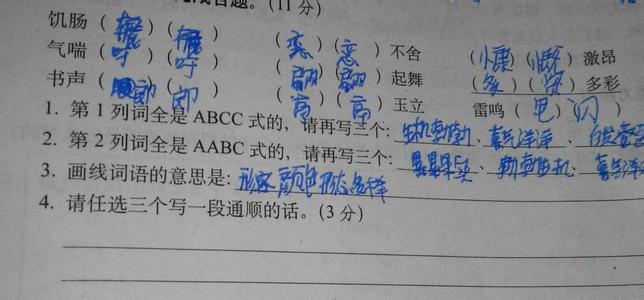 (11分)
饥肠(辘)(辘) (恋)(恋)不舍 (慷)(慨)激昂
气喘(吁)(吁) (翩)(翩)起舞 (多)( )多彩
书声(朗)(郎) (亭)(亭)玉立 雷鸣(电)(闪)
1. 第1列词全是ABCC式的,请再写三个: 生机勃勃、喜气洋洋、
2. 第2列词全是AABC式的,请再写三个:
3. 画线词语的意思是: 形容颜色形态多样
4. 请任选三个写一段通顺的话。(3分)